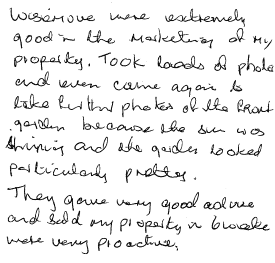 were extremely
good in the marketing of my
property. Took loads of photos
and even came again to
take further photos of the front
garden because the sun was
shining and the garden looked
particularly pretty.
They gave very good advice
and sold my property in 6 weeks
were very proactive.